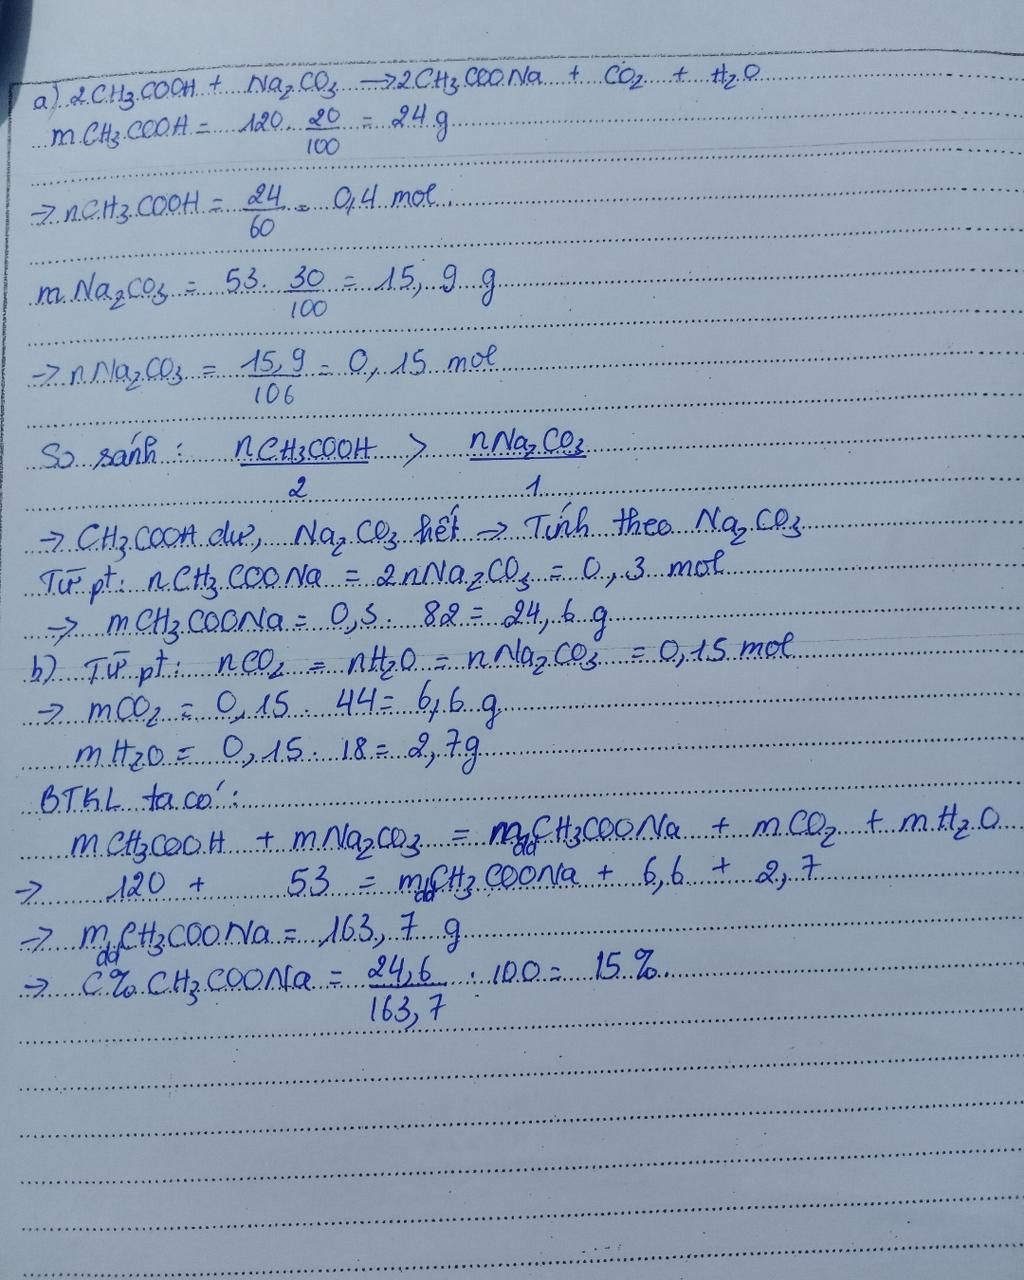 a) 2CH₃COOH + Na₂CO₃ → 2CH₃COONa + CO₂ + H₂O
mCH₃COOH = 120 . 20/100 = 24 g
→ nCH₃COOH = 24/60 = 0,4 mol
mNa₂CO₃ = 53 . 30/100 = 15,9 g
→ nNa₂CO₃ = 15,9/106 = 0,15 mol
So sánh : nCH₃COOH/2 > nNa₂CO₃/1
→ CH₃COOH dư, Na₂CO₃ hết → Tính theo Na₂CO₃
Từ pt: nCH₃COONa = 2nNa₂CO₃ = 0,3 mol
→ mCH₃COONa = 0,3 . 82 = 24,6 g
b) Từ pt: nCO₂ = nH₂O = nNa₂CO₃ = 0,15 mol
→ mCO₂ = 0,15 . 44 = 6,6 g
mH₂O = 0,15 . 18 = 2,7g
BTKL ta có :
mCH₃COOH + mNa₂CO₃ = mddCH₃COONa + mCO₂ + mH₂O
→ 120 + 53 = mddCH₃COONa + 6,6 + 2,7
→ mddCH₃COONa = 163,7 g
→ C% CH₃COONa = 24,6/163,7 . 100 = 15%